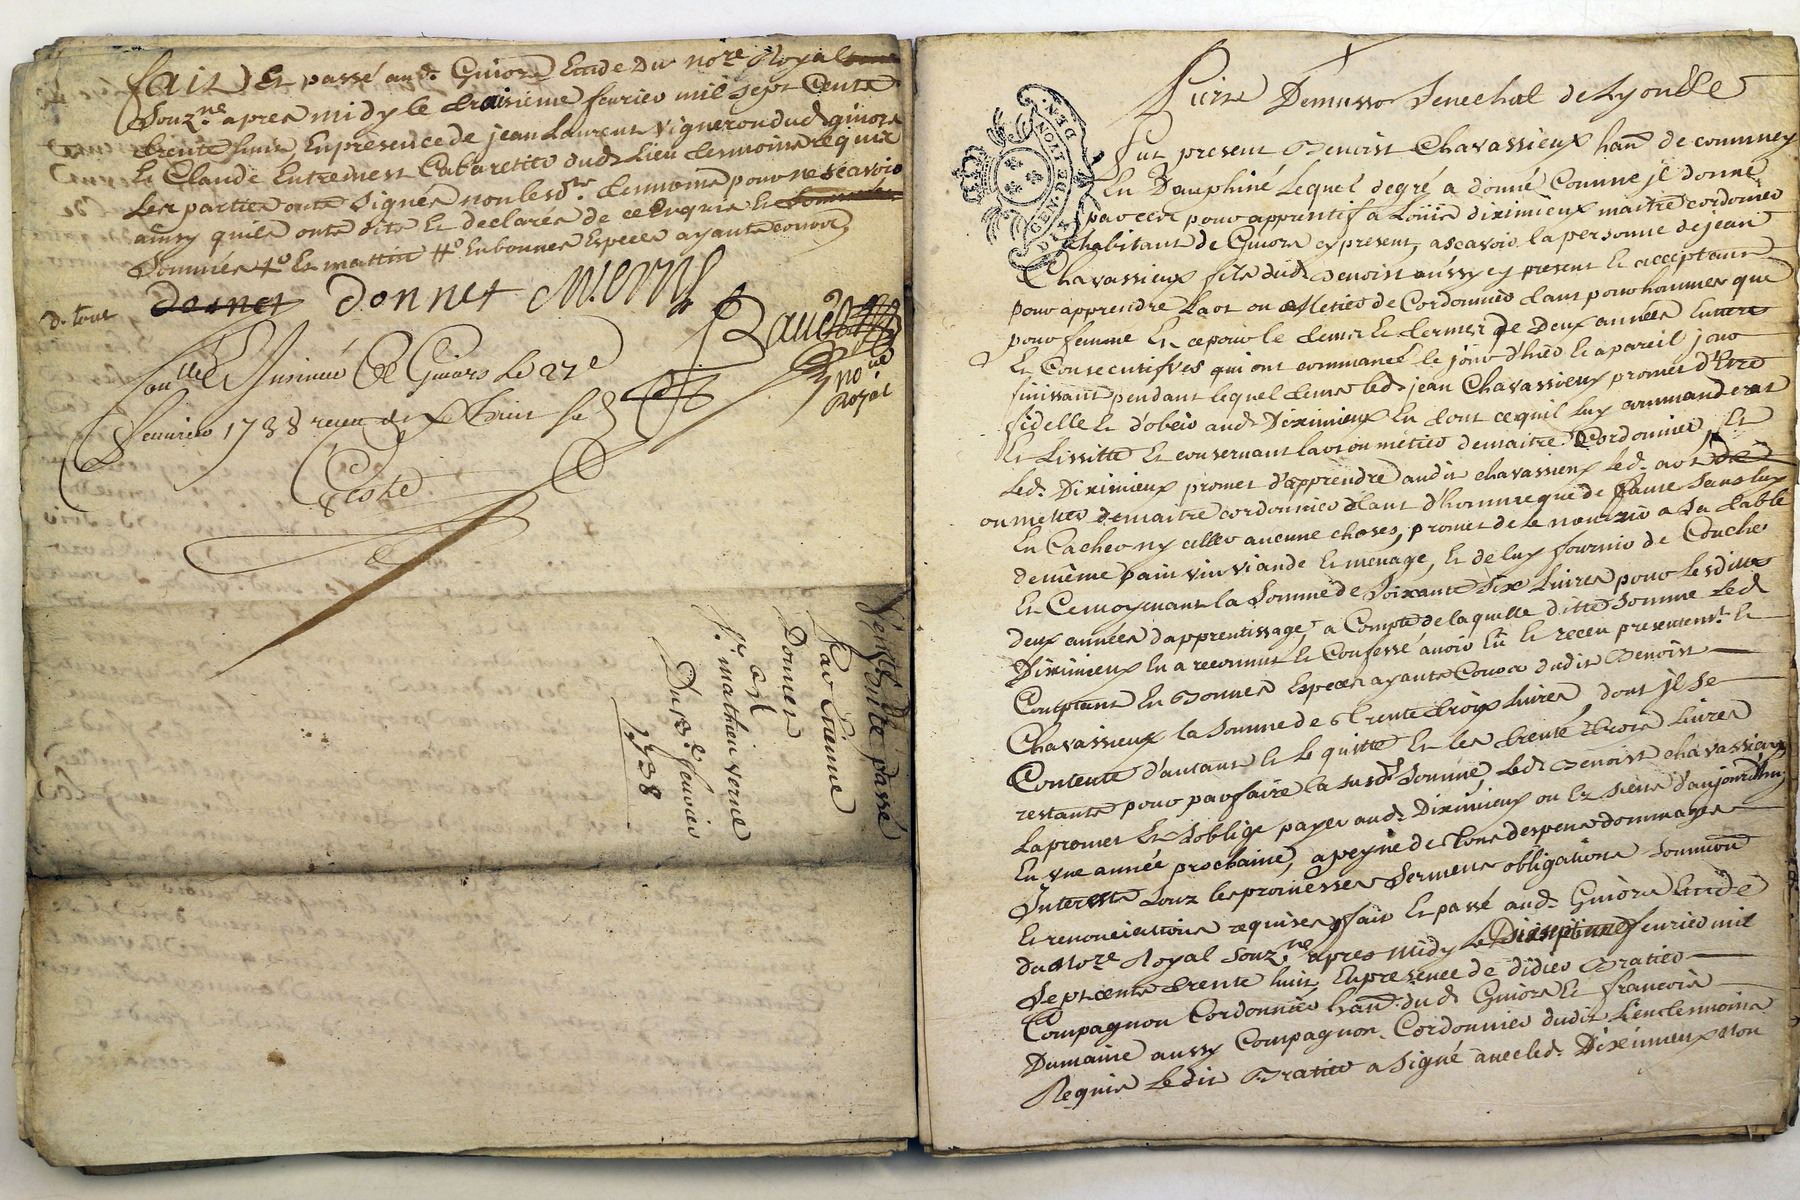 fait Et passé aud. Givors Etude Du nore. Royal
Souz.ne apres midy le troisieme fevrier mil sept Cents
trente huit, En presence de jean Laurent vigneron dud. givors
Et Claude Entremest Cabaretier dud. Lieu temoins requis
Les parties ont signés non lesd. temoins pour ne scavoir
ainsy quils ont dit Et declarés de ce Enquis Et
En bonnes Especes ayant cours
donnet donnet M. verne
d. tout
Bauet
no.re
Royal
Insinué A Givors Le 27e
fevrier 1738 receu
Coste
Vente a dite passé
Par Etienne
Donnet
a
Sr. mathieu verne
Du 3e. fevrier
1738
GEN. DE LYON DEN.
Pierre Demasso Senechal de Lyon
Fut present Benoist Chavassieux han. de communay
En Dauphiné Lequel de gré a donné Comme jl donne
par ces. pour apprentif a Loüis diximieux maitre cordonier
habitant de Givors cy present, ascavoir la personne de jean
Chavassieux fils dud. Benoist aussy cy present Et acceptant
pour apprendre Lart ou Metier de Cordonnier tant pour hommes que
pour femme Et ce pour le tems Et terme de Deux années Entieres
Et Consecutifves qui ont commancé le jour d'hier Et a pareil jour
finissant pendant lequel tems led. jean Chavassieux promet d'Etre
fidelle Et d'obeir aud. Diximieux En tout ce quil luy commanderat
Et Lissitte Et consernant lart ou métier de maitre Cordonnier, Et
Led. Diximieux promet d'apprendre audit chavassieux led. art
ou metier de maitre cordonnier tant d'homme que de femme sans luy
En Cacher ny celler aucune choses, promet de le nourrir a sa table
de même pain vin viande Et menage, Et de luy fournir de Couche
Et Ce moyenant la Somme de Soixante Six Livres pour Lesdittes
deux années dapprentissage, a Compte de laquelle ditte Somme Led.
Diximieux En a reconnut Et Confessé avoir Eü Et receu presentemt. Et
Comptant En Bonnes Especes ayants Cours dudit Benoist
Chavassieux la Somme de trente trois Livres, dont jl Se
Contente d'autant Et le quitte Et les trente trois Livres
restante pour parfaire la susd. Somme, Led. Benoist chavassieux
La promet Et soblige payer aud. Diximieux ou Ez siens d'aujourdhuy
En une année prochaine, a peyne de Tous despens dommages
Interests Souz les promesses Sermens obligations Soumions
Et renonciations requises, fait Et passé aud. Givors Etude
Du Nore. Royal Souz.ne apres Midy Le Dixseptieme fevrier mil
Sept cents trente huit, En presence de didier Bratier
Compagnon Cordonnier han. dud. Givors Et francois
Dumaine aussy Compagnon Cordonnier dudit Lieu temoins
Requis Ledit Bratier a signé avec led. Diximieux Non